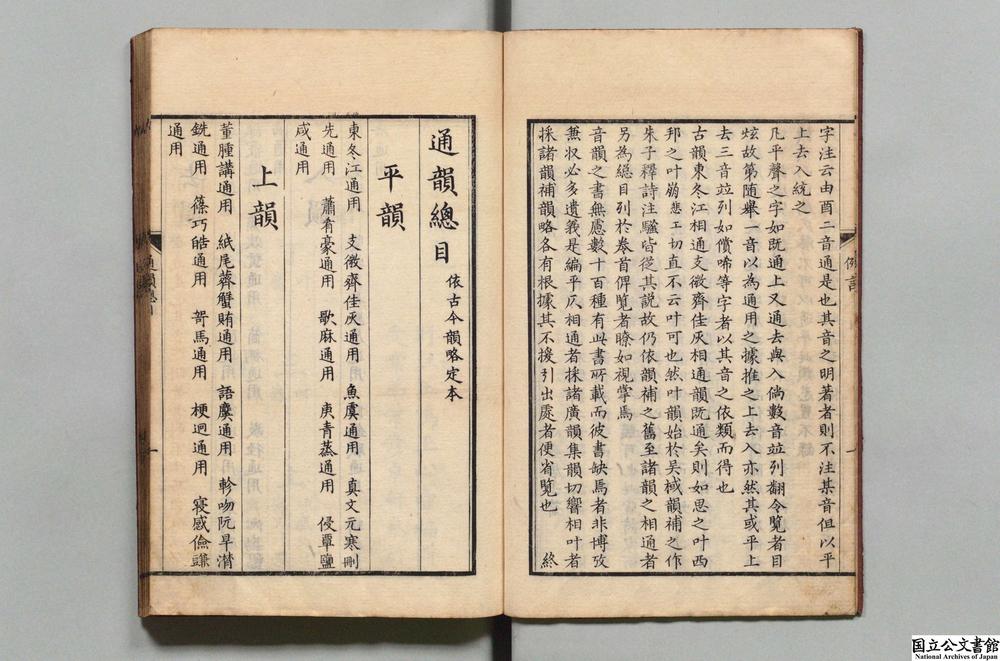 字注云由酉二音通是也其音之明著者則不注某音但以平
上去入統之
凡平聲之字如既通上又通去與入倘數音竝列翻令覽者目
炫故第随舉一音以為通用之據推之上去入亦然其或平上
去三音竝列如償唏等字者以其音之依類而得也
古韻東冬江相通支微齊佳灰相通韻既通矣則如思之叶西
邦之叶崩悲工切直不云叶可也然叶韻始於吴棫韻補之作
朱子釋詩注騷皆從其說故仍依韻補之舊至諸韻之相通者
另為總目列於卷首俾覽者瞭如視掌焉
音韻之書無慮數十百種有此書所載而彼書缺焉者非博攷
兼收必多遺義是編平仄相通者採諸廣韻集韻切響相叶者
採諸補韻略各有根據其不援引出處者便省覽也 終
例言
一
通韻總目 依古今韻略定本
平韻
東冬江通用 支微齊佳灰通用 魚虞通用 真文元寒刪
先通用 蕭肴豪通用 歌麻通用 庚青蒸通用 侵覃鹽
咸通用
上韻
董腫講通用 紙尾薺蟹賄通用 語麌通用 軫吻阮旱潸
銑通用 篠巧皓通用 哿馬通用 梗迥通用 寑感儉豏
通用
国立公文書館
National Archives of Japan